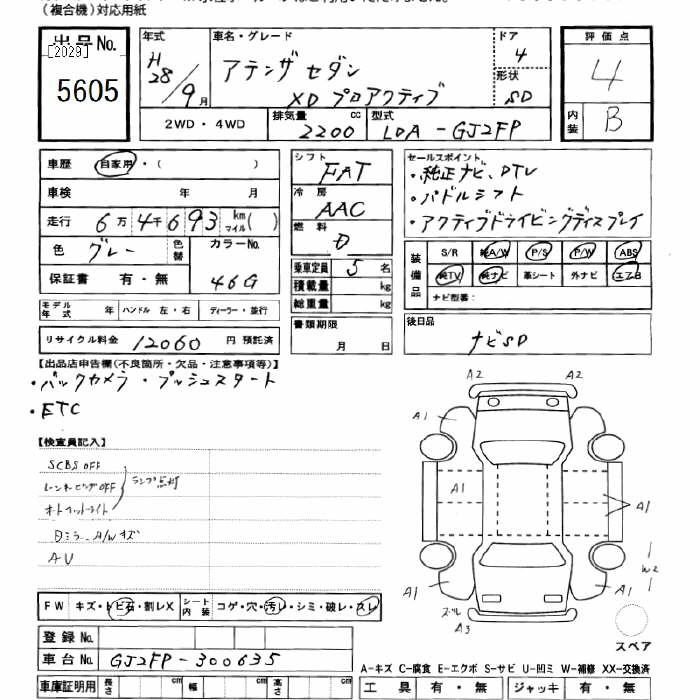 (複合機)対応用紙
出品No.
[2029]
5605
年式 H28/9月
車名・グレード
アテンザ セダン
XD プロアクティブ
ドア 4
形状 SD
評価点
4
内装 B
2WD・4WD
排気量 2200 cc
型式 LDA-GJ2FP
車歴 自家用・( )
車検 年 月
走行 6万4千693 km マイル( )
色 グレー 色替 カラーNo. 46G
保証書 有・無
モデル年式 年 ハンドル 左・右 ディーラー・並行
リサイクル料金 12060 円 預託済
シフト FAT
冷房 AAC
燃料 D
乗車定員 5 名
積載量 kg
総重量 kg
書類期限
月 日
セールスポイント
・純正ナビ、DTV
・パドルシフト
・アクティブドライビングディスプレイ
装備品
S/R 純A/W P/S P/W ABS
純TV 純ナビ 革シート 外ナビ エアB
ナビ型番:
後日品
ナビSD
【出品店申告欄(不良箇所・欠品・注意事項等)】
・バックカメラ・プッシュスタート
・ETC
【検査員記入】
SCBS OFF
レーンキーピングOFF
オートハイトライト
ランプ点灯
日ミラー、A/Wキズ
AU
FW キズ・トビ石・割レX シート内装 コゲ・穴・汚レ・シミ・破レ・スレ
登録No.
車台No. GJ2FP-300635
車庫証明用 長さ cm 幅 cm 高さ cm
A2 A2
A1
A1
A1
A1 A1
W2
A3
スペア
A-キズ C-腐食 E-エクボ S-サビ U-凹ミ W-補修 XX-交換済
工具 有・無 ジャッキ 有・無